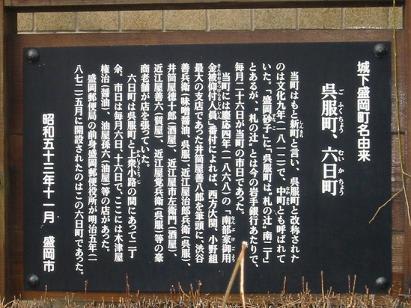 城下盛岡町名由来
呉服町、六日町
ごふくちょう　むいかちょう
当町はもと新町と言い、呉服町と改称された
のは文化九年（一八一二）で、中町とも呼ばれて
いた。「盛岡砂子」に「呉服町は、札の辻南二丁」
とあるが、“札の辻”とは今の岩手銀行あたりで、
毎月二十六日が当町の市日であった。
当町には慶応四年（一八六八）の「南部家御用
金被仰付人員」番付によれば、西方大関、小野組
最大の支店であった井筒屋善八郎を筆頭に、渋谷
善兵衛（味噌醤油、呉服）、近江屋治郎兵衛（呉服）、
井筒屋徳十郎（酒屋）、近江屋市左衛門（酒屋）、
近江屋善六（質屋）、近江屋覚兵衛（呉服）等の豪
商老舗が店を張っていた。
六日町は呉服町と上衆小路の間にあって二丁
余、市日は毎月六日、十六日で、ここには木津屋
権治（醤油）、油屋孫六（油屋）等の店があった。
盛岡郵便局の前身盛岡郵便役所が明治五年（一
八七二）五月に開設されたのはこの六日町であった。
昭和五十三年十一月　盛岡市